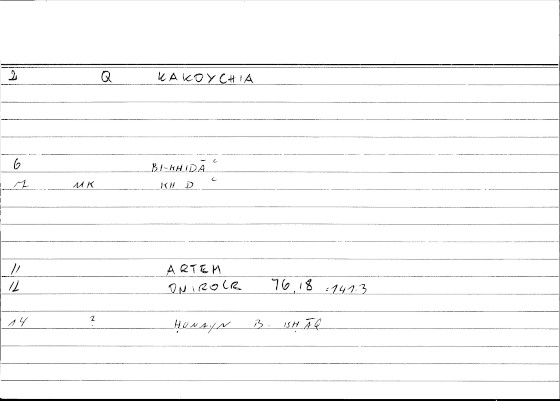 2 Q KAKOYCHIA
6 BI-KHIDĀʿ
MK KH D ʿ
11 ARTEM
12 ONIROCR 76,18 =141.3
14 ? ḤUNAYN B. ISḤĀQ